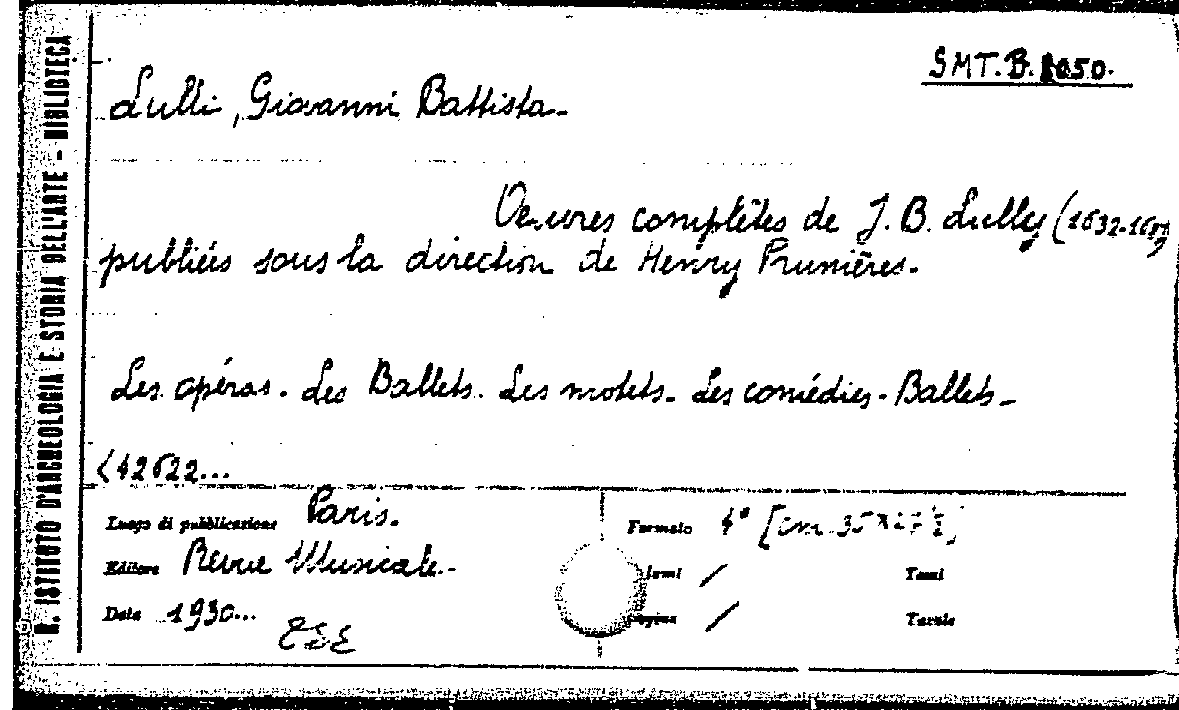 R. ISTITUTO D'ARCHEOLOGIA E STORIA DELL'ARTE - BIBLIOTECA
SMT. B. 1050.
Lulli, Giovanni Battista
Oeuvres complètes de J. B. Lully (1632-1687)
publiés sous la direction de Henry Prunières.
Les opéras. Les Ballets. Les motets. Les comédies-Ballets
(42622...
Luogo di pubblicazione Paris.
Formato 4° [cm. 35 x 27 ½]
Editore Revue Musicale.
/ Tomi
Data 1930...
/ Tavole